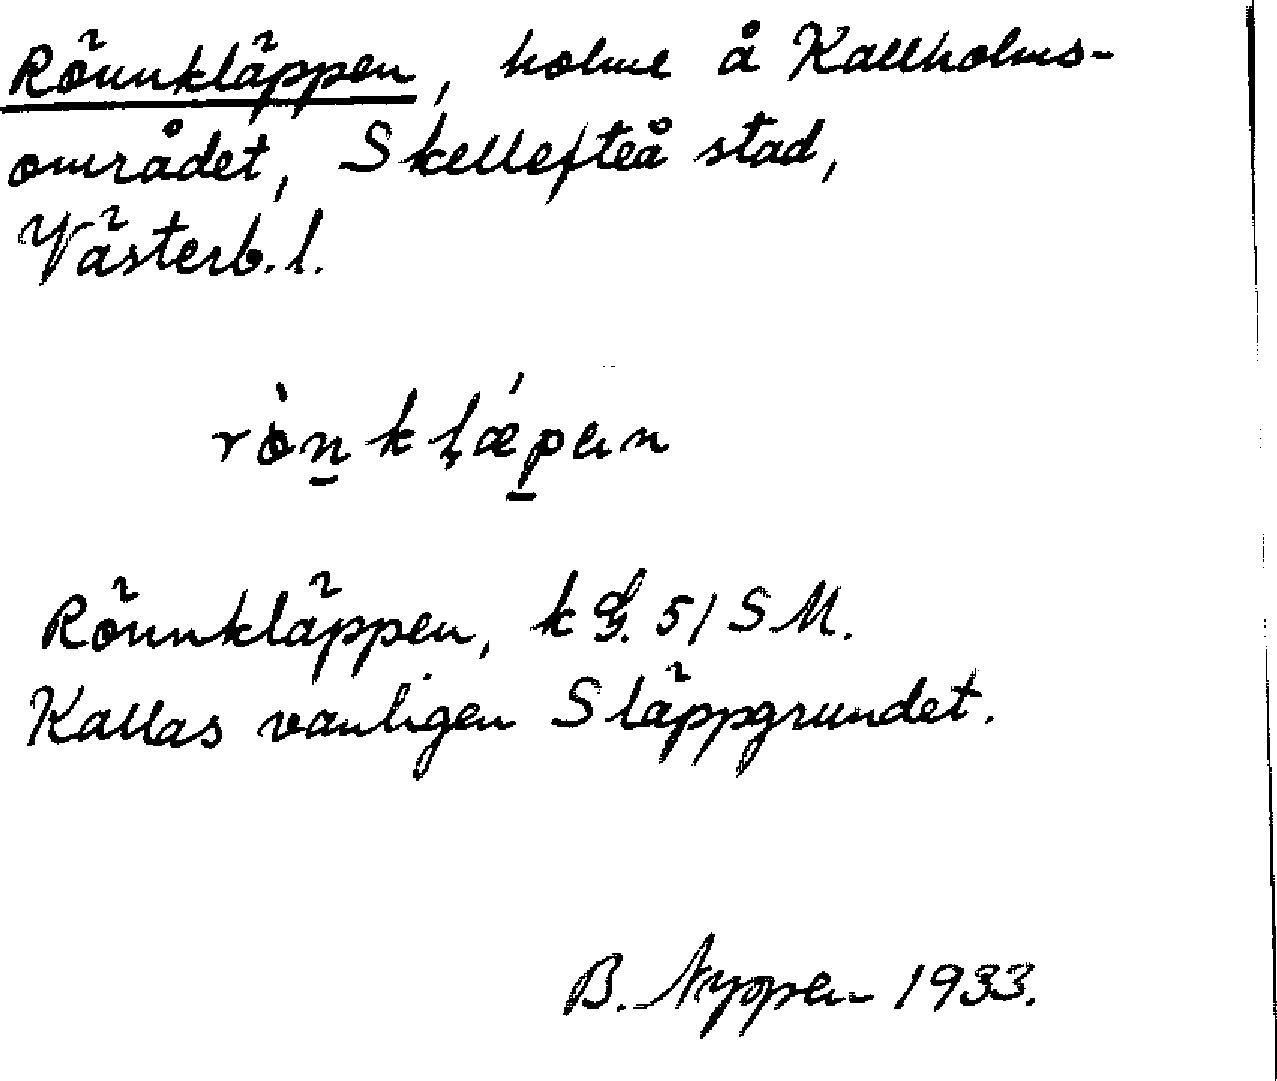 Rönnkläppen, holme å Kallholms-
området, Skellefteå stad,
Västerb. l.
Rönnkläppen, k G. 51 SM.
Kallas vanligen Släppgrundet.
B. Nyppen 1933.